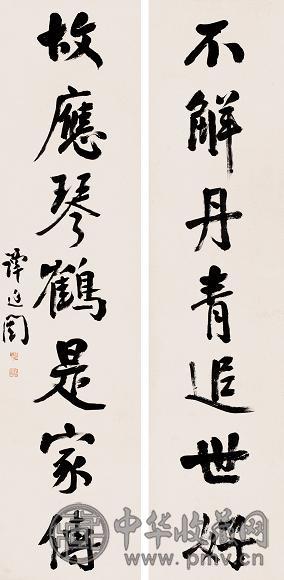 不解丹青追世好
故應琴鶴是家傳
譚延闓
中华收藏网
www.pmv.cn